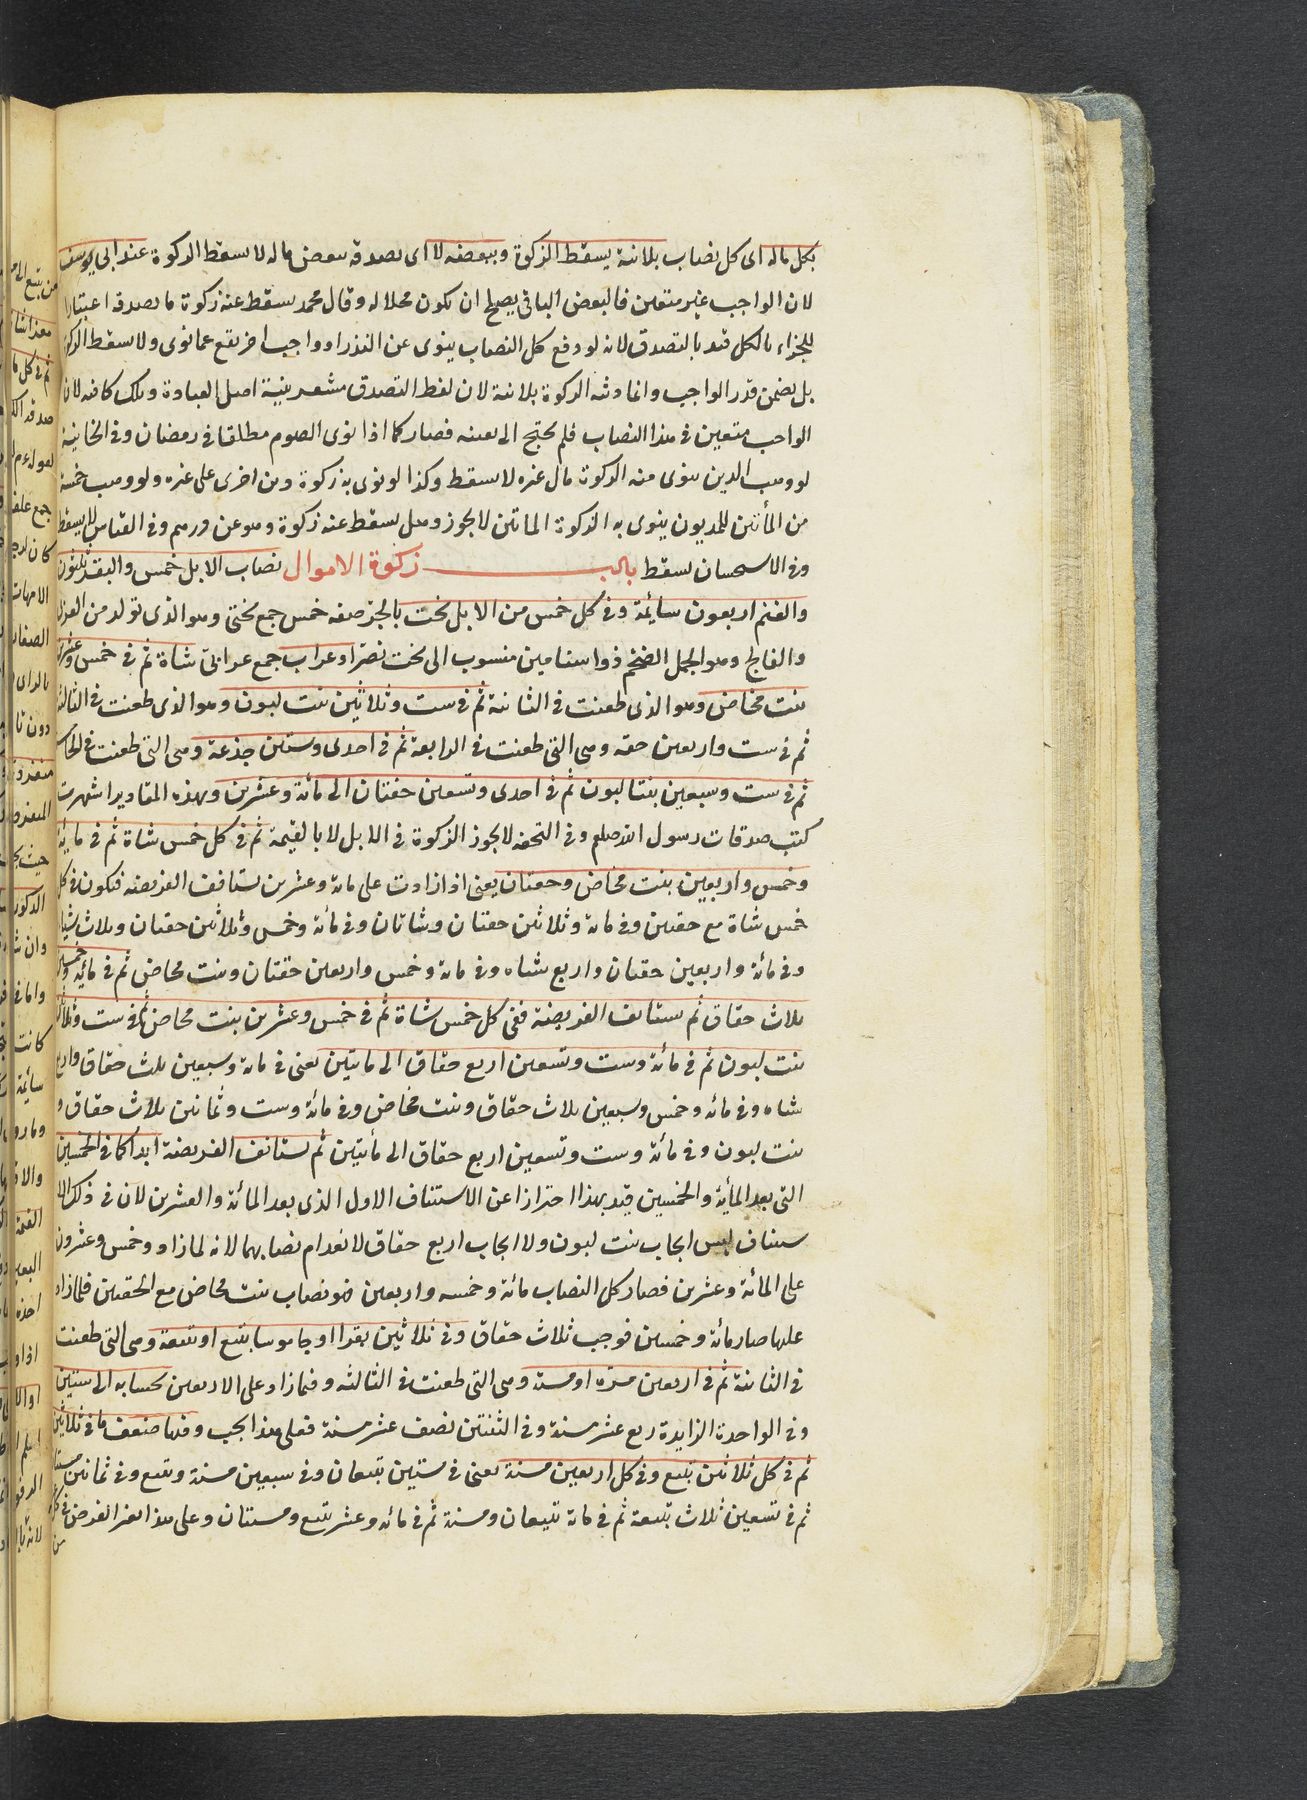 بكل ماله اى كل نصاب بلا نية يسقط الزكوة وببعضه لا اى بصدقه ببعض ماله لا يسقط الزكوة عند ابى يوسف
لان الواجب غير متعين فالبعض الباقى يصلح ان يكون محلا له وقال محمد يسقط عنه زكوة ما تصدق اعتبارا
للجزاء بالكل قيد بالتصدق لانه لو دفع كل النصاب ينوى عن النذر او واجب اخر يقع عما نوى ولا يسقط الزكوة
بل يضمن قدر الواجب وانما دته الزكوة بلا نية لان لفظ التصدق مشعر بنية اصل العبادة وتلك كافيه لان
الواجب متعين فى هذا النصاب فلم يحتج الى تعينه فصار كما اذا نوى الصوم مطلقا فى رمضان وفى الخانية
لو وهب الدين ينوى منه الزكوة مال غيره لا يسقط وكذا لو نوى به زكوة دين اخرى على غيره ولو وهب خمسة
من المأتين للمديون ينوى به الزكوة الماتين لا يجوز وهل يسقط عنه زكوة وهو عن درهم وفى القياس لا يسقط
وفى الاستحسان يسقط باب زكوة الاموال نصاب الابل خمس والبقر ثلثون
والغنم اربعون سائمة وفى كل خمس من الابل بخت بالجر صفه خمس جمع بختى وهو الذى تولد من العربى
والفالج وهو الجمل الضخم ذو اسنامين منسوب الى بخت نصر او عراب جمع عرابى شاة ثم فى خمس وعشرين
بنت مخاض وهو الذى طعنت فى الثانية ثم فى ست وثلاثين بنت لبون وهو الذى طعنت فى الثالثة
ثم فى ست واربعين حقه وهى التى طعنت فى الرابعة ثم فى احدى وستين جذعة وهى التى طعنت فى الخامسة
ثم فى ست وسبعين بنتا لبون ثم فى احدى وتسعين حقتان الى مائة وعشرين وبهذه المقادير اشتهرت
كتب صدقات رسول الله صلعم وفى التحفه لا يجوز الزكوة فى الابل الا بالقيمة ثم فى كل خمس شاة ثم فى مائة
وخمس واربعين بنت مخاض وحقتان يعنى اذا زادت على مائة وعشرين يستانف الفريضه فيكون فى كل
خمس شاة مع حقتين وفى مائة وثلاثين حقتان وشاتان وفى مائة وخمس وثلاثين حقتان وثلاث شياه
وفى مائة واربعين حقتان واربع شياه وفى مائة وخمس واربعين حقتان وبنت مخاض ثم فى مائة وخمسين
ثلاث حقاق ثم يستانف الفريضة ففى كل خمس شاة ثم فى خمس وعشرين بنت مخاض ثم فى ست وثلاثين
بنت لبون ثم فى مائة وست وتسعين اربع حقاق الى مائتين يعنى فى مائة وسبعين ثلث حقاق واربع
شياه وفى مائة وخمس وسبعين ثلاث حقاق وبنت مخاض وفى مائة وست وثمانين ثلاث حقاق و
بنت لبون وفى مائة وست وتسعين اربع حقاق الى مأتين ثم يستانف الفريضة ابدا كما فى الخمسين
التى بعد المأية والخمسين قيد بهذا احترازا عن الاستئناف الاول الذى بعد المائة والعشرين لان فى ذلك الا
ستئناف ليس ايجاب بنت لبون ولا ايجاب اربع حقاق لانعدام نصابهما لانه لما زاد وخمس وعشرون
على المائة وعشرين فصار كل النصاب مائة وخمسه واربعين فهو نصاب بنت مخاض مع الحقتين فلما زاد
عليها صار مائة وخمسين فوجب ثلاث حقاق وفى ثلاثين بقرا او جاموسا تبيع او تبيعة وهى التى طعنت
فى الثانية ثم فى اربعين مسن او مسنة وهى التى طعنت فى الثالثه وفيما زاد على الاربعين بحسابه الى ستين
وفى الواحدة الزايدة ربع عشر مسنة وفى الثنتين نصف عشر مسنة فعلى هذا يجب وفيها ضعف ما فى ثلاثين
ثم فى كل ثلاثين تبيع وفى كل اربعين مسنة يعنى فى ستين تبيعان وفى سبعين مسنة وتبيع وفى ثمانين مسنتا
ثم فى تسعين ثلاث تبيعة ثم فى مائة تبيعان ومسنة ثم فى مائه وعشر تبيع ومسنتان وعلى هذا يغير الفرض فى كل